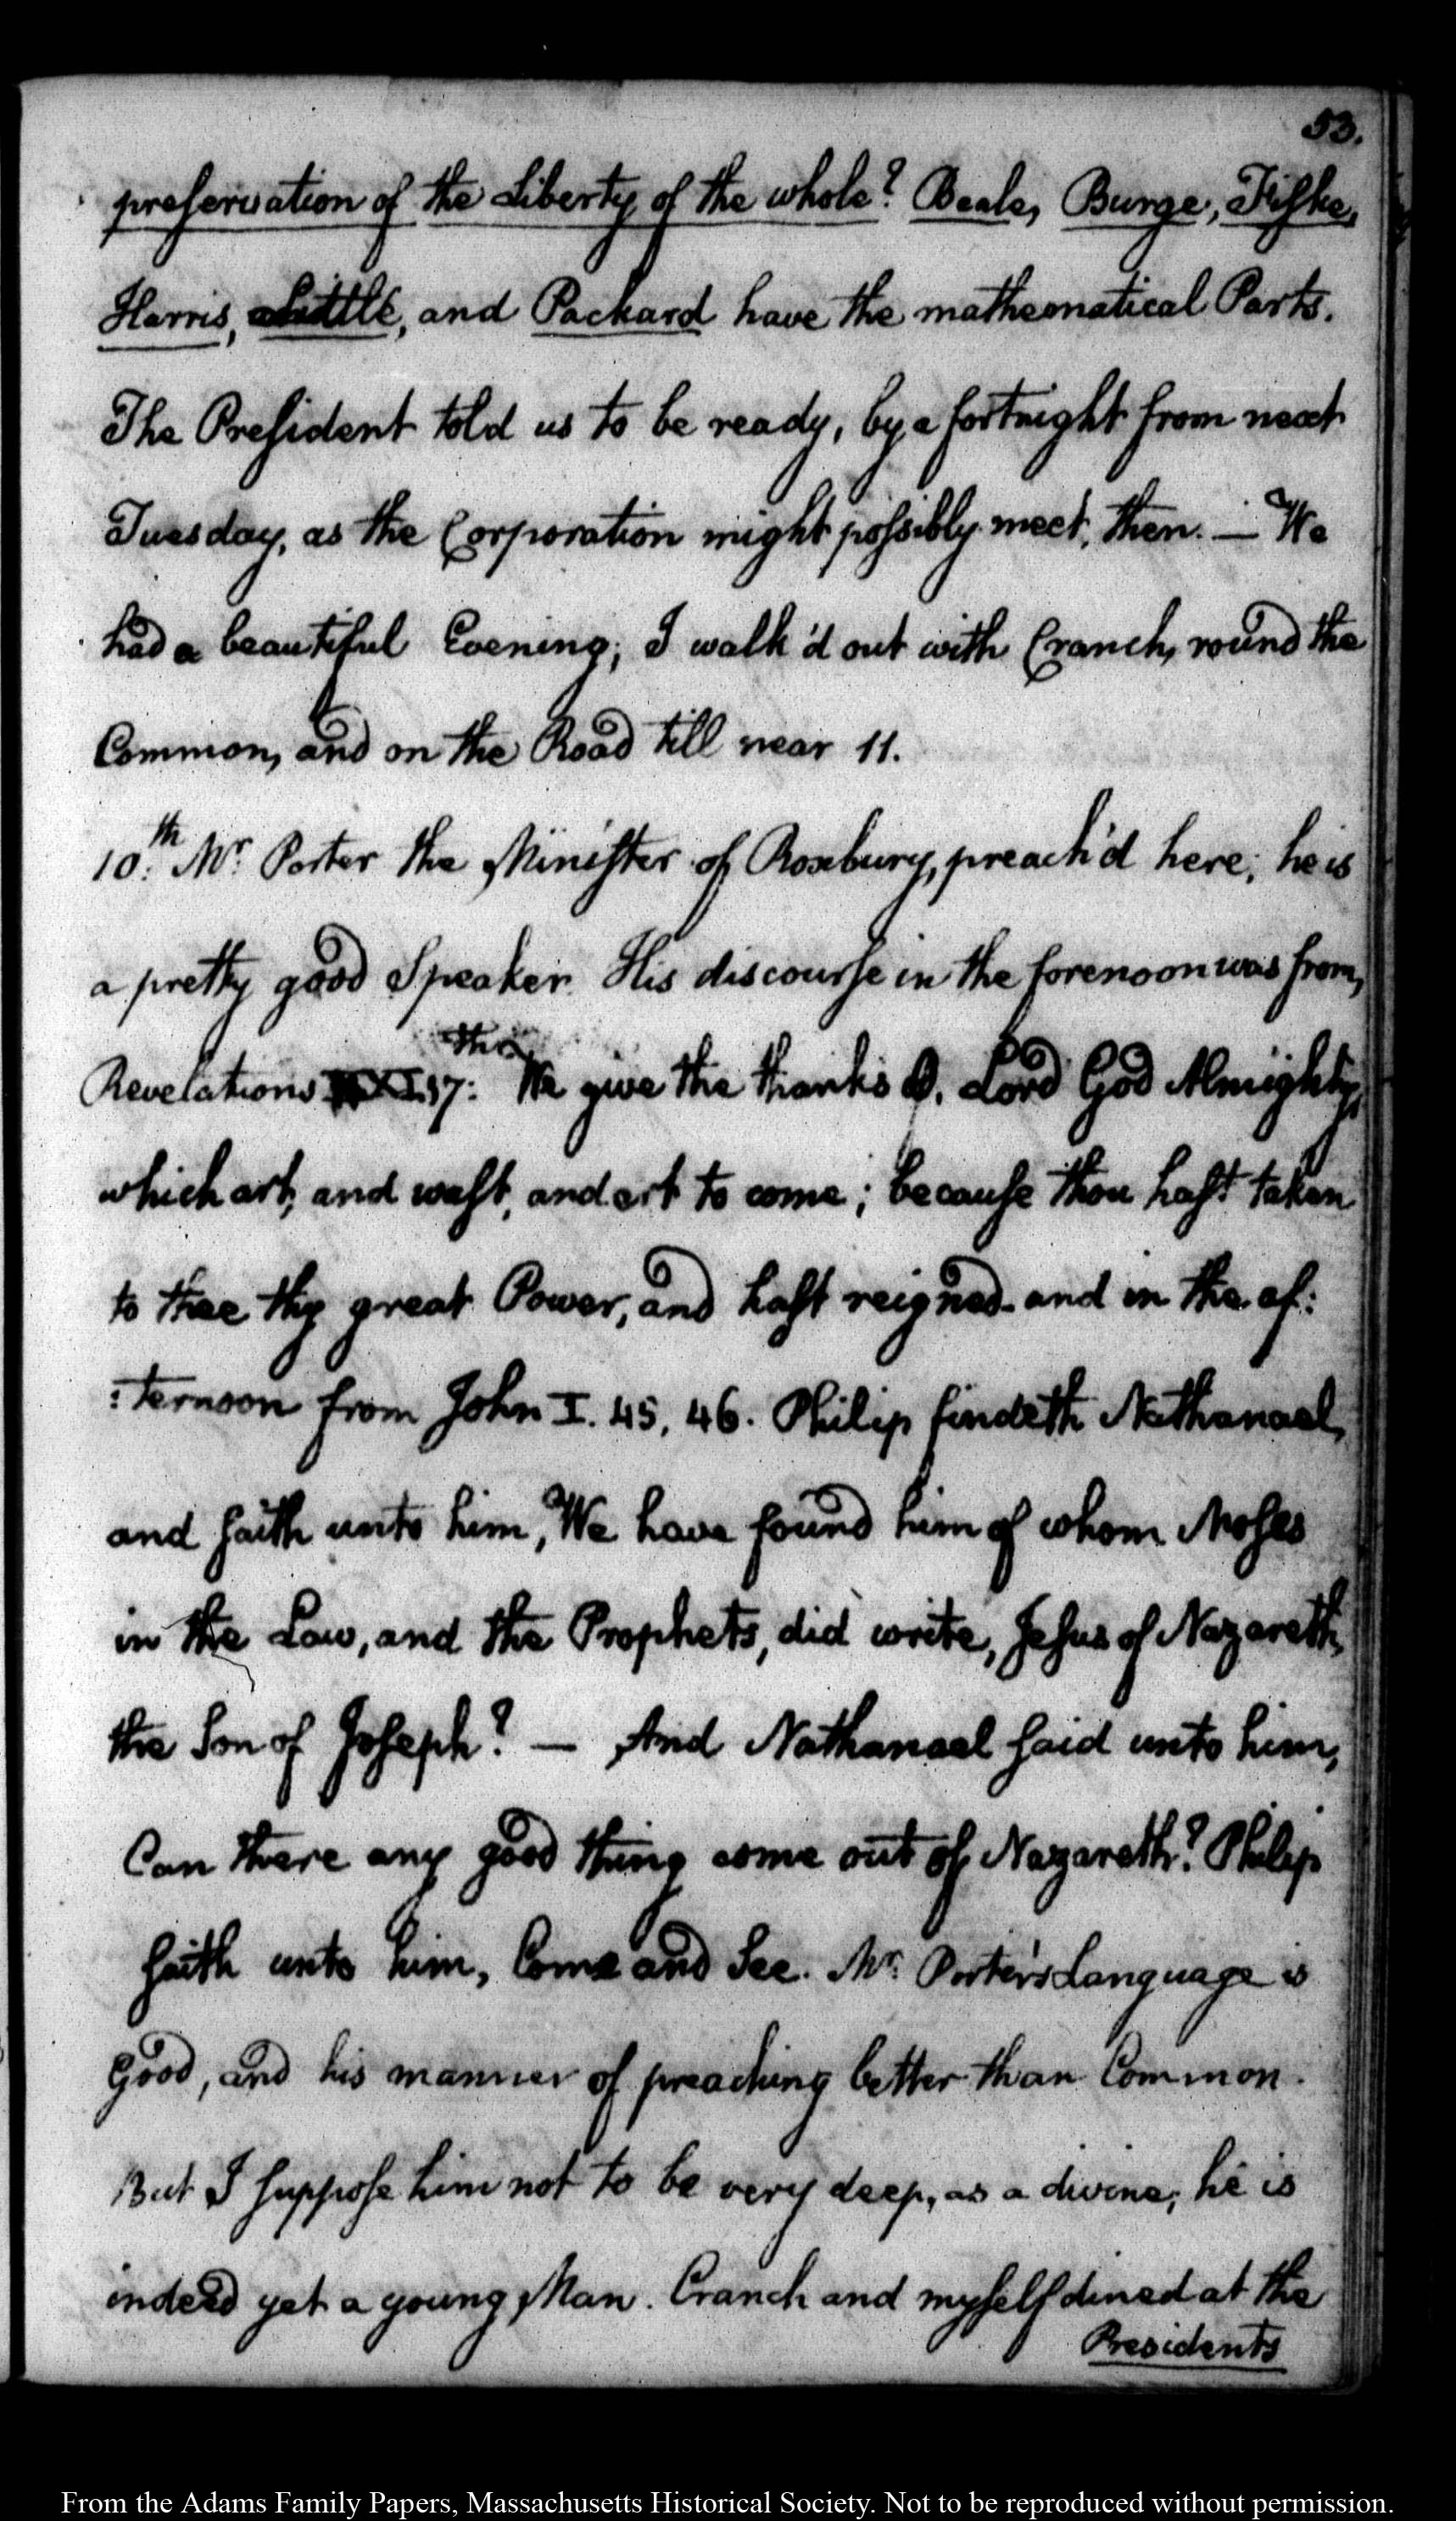 53.
preservation of the Liberty of the whole? Beale, Burge, Fiske,
Harris, Little, and Packard have the mathematical Parts.
The President told us to be ready, by a fortnight from next
Tuesday, as the Corporation might possibly meet, then. — We
had a beautiful Evening; I walk'd out with Cranch, round the
Common, and on the Road till near 11.
10th: Mr. Porter the Minister of Roxbury, preach'd here; he is
a pretty good Speaker. His discourse in the forenoon was from,
the
Revelations 17: We give the thanks O, Lord God Almighty,
which art, and wast, and art to come; because thou hast taken
to thee thy great Power, and hast reigned. and in the af:
:ternoon from John I. 45, 46. Philip findeth Nathanael,
and saith unto him, We have found him of whom Moses
in the Law, and the Prophets, did write, Jesus of Nazareth,
the Son of Joseph? — And Nathanael said unto him,
Can there any good thing come out of Nazareth? Philip
saith unto him, Come and See. Mr. Porter's Language is
Good, and his manner of preaching better than Common.
But I suppose him not to be very deep, as a divine; he is
indeed yet a young Man. Cranch and myself dined at the
Presidents
From the Adams Family Papers, Massachusetts Historical Society. Not to be reproduced without permission.